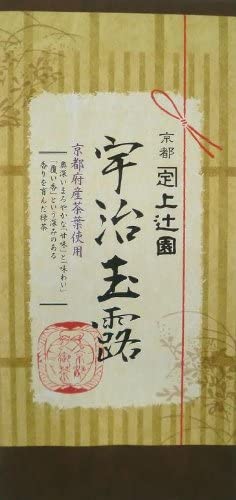 京都 定上辻園
宇治玉露
京都府産茶葉使用
奥深いまろやかな「甘味」と「味わい」
「覆い香」という深みのある
香りを育んだ緑茶